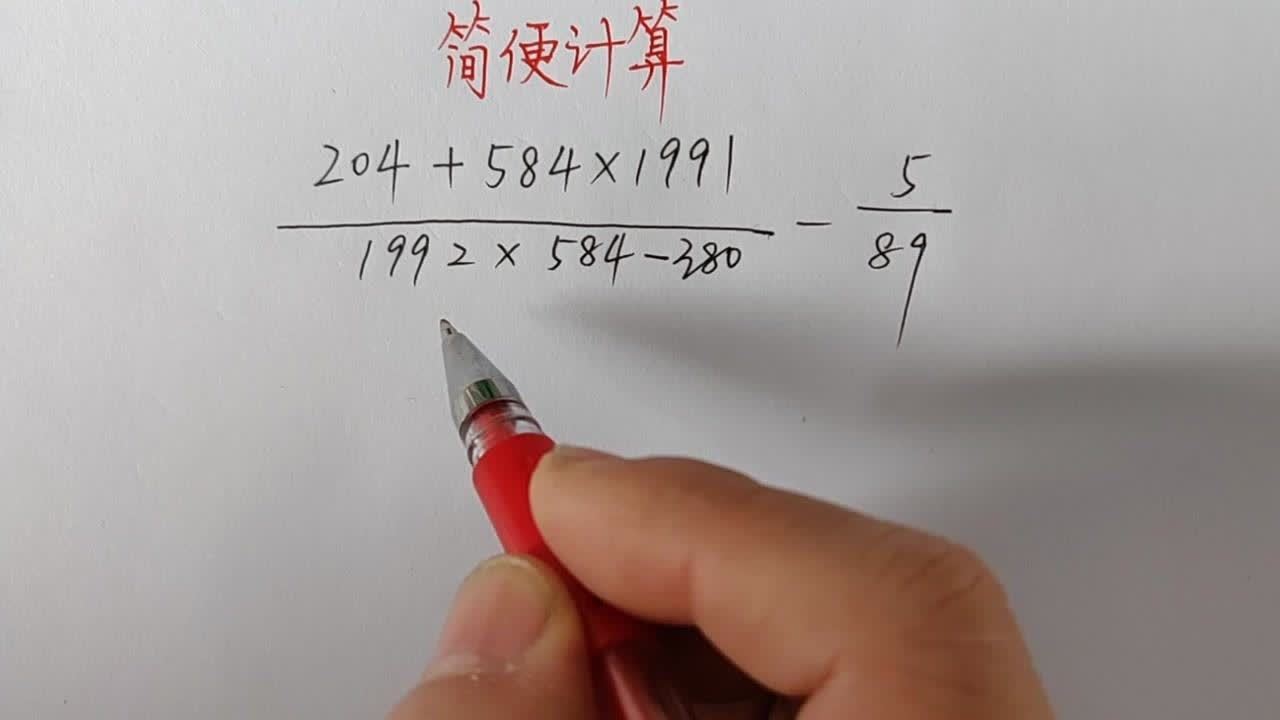 简便计算
204+584×1991
1992×584-380
-
5
89